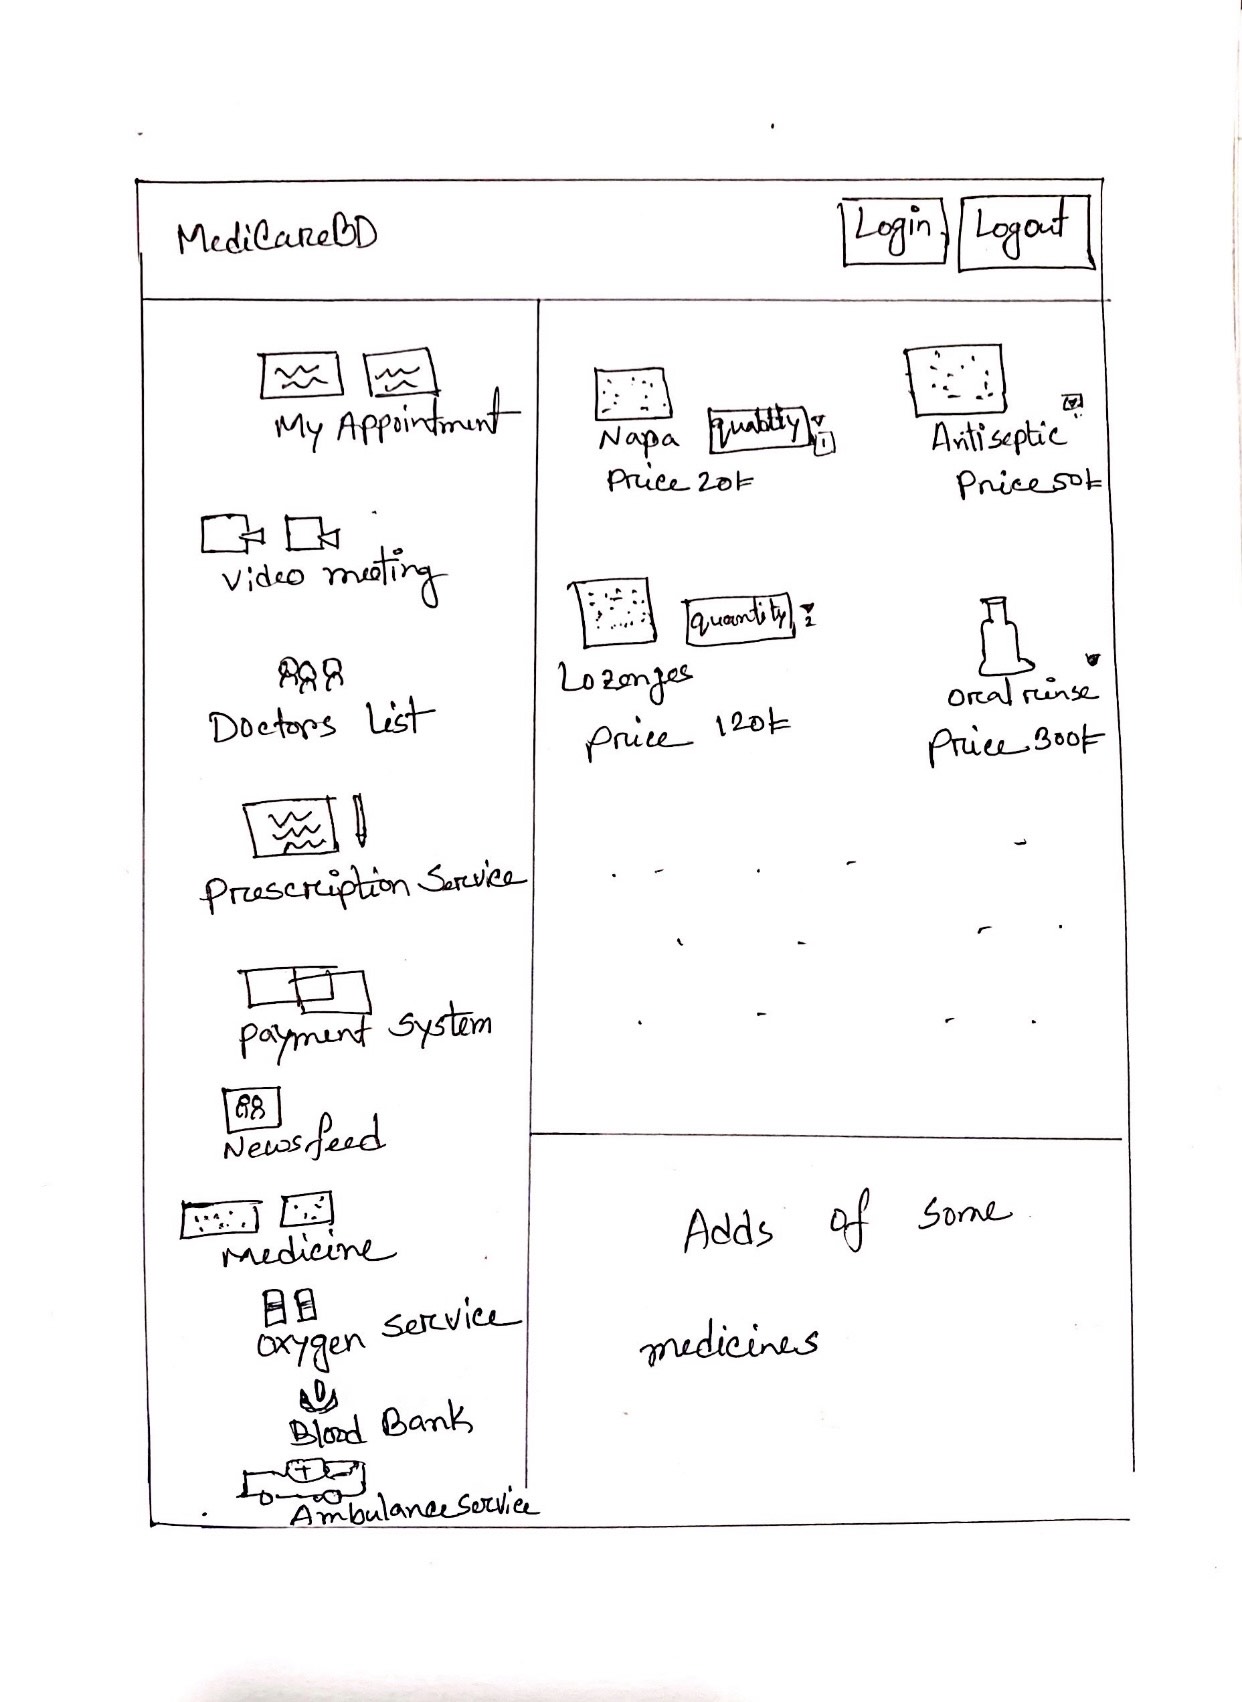 MediCareBD
Login
Logout
My Appointment
Video meeting
Doctors List
Prescription Service
Payment System
Newsfeed
Medicine
Oxygen Service
Blood Bank
Ambulance Service
Napa
quabtty
1
Price 20৳
Antiseptic
Price 50৳
Lozenges
quantity
2
Price 120৳
Oral rinse
Price 300৳
Adds of some
medicines